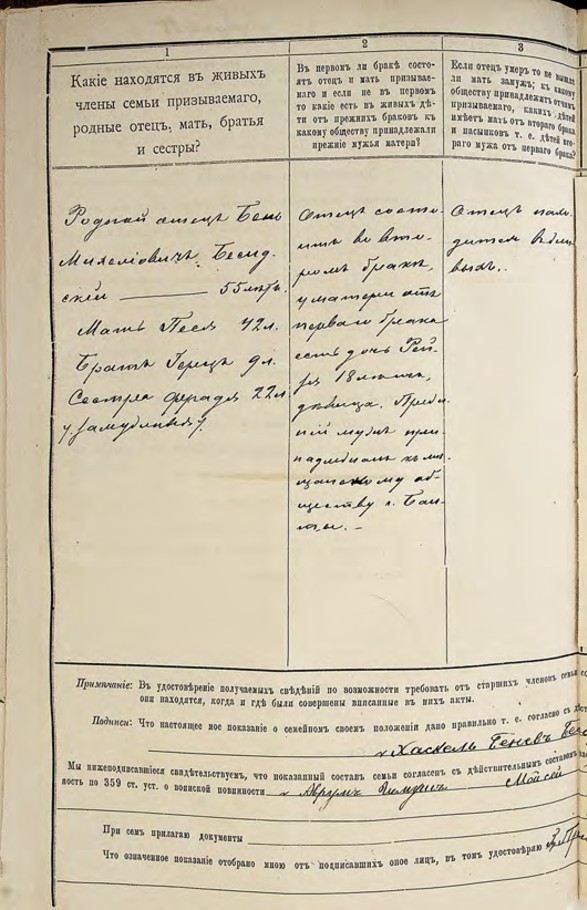 1
2
3
Какіе находятся въ живыхъ
члены семьи призываемаго,
родные отецъ, мать, братья
и сестры?
Въ первомъ ли бракѣ состо-
ятъ отецъ и мать призывае-
маго и если не въ первомъ
то какіе есть въ живыхъ дѣ-
ти отъ прежнихъ браковъ къ
какому обществу принадлежали
прежніе мужья матери?
Если отецъ умеръ то не вышла
ли мать замужъ; къ какому
обществу принадлежитъ отчимъ
призываемаго, какихъ дѣтей
имѣетъ мать отъ втораго брака
и пасынковъ т. е. дѣтей вто-
раго мужа отъ перваго брака?
Родной отецъ Бень
Михелiовичъ Бесид-
скій 55 лѣтъ.
Мать Песя 42 л.
Братъ Герцъ 9 л.
Сестра 22 л.
Отецъ состо-
итъ во вто-
ромъ бракѣ,
у матери отъ
перваго брака
есть дочь Рей-
зя 18 лѣтъ,
дѣвица. Преж-
ній мужъ при-
надлежалъ къ мѣ-
щанскому об-
ществу г. Бал-
ты. –
Отецъ нахо-
дится въ жи-
выхъ.
Примѣчаніе: Въ удостовѣреніе получаемыхъ свѣдѣній по возможности требовать отъ старшихъ членовъ семьи
они находятся, когда и гдѣ были совершены вписанные въ нихъ акты.
Подписи: Что настоящее мое показаніе о семейномъ своемъ положеніи дано правильно т. е. согласно съ
Хаскель Беневъ
Мы нижеподписавшіеся свидѣтельствуемъ, что показанный составъ семьи согласенъ съ дѣйствительнымъ составомъ
ность по 359 ст. уст. о воинской повинности Абрумъ Мойсей
При семъ прилагаю документы
Что означенное показаніе отобрано мною отъ подписавшихъ оное лицъ, въ томъ удостовѣряю